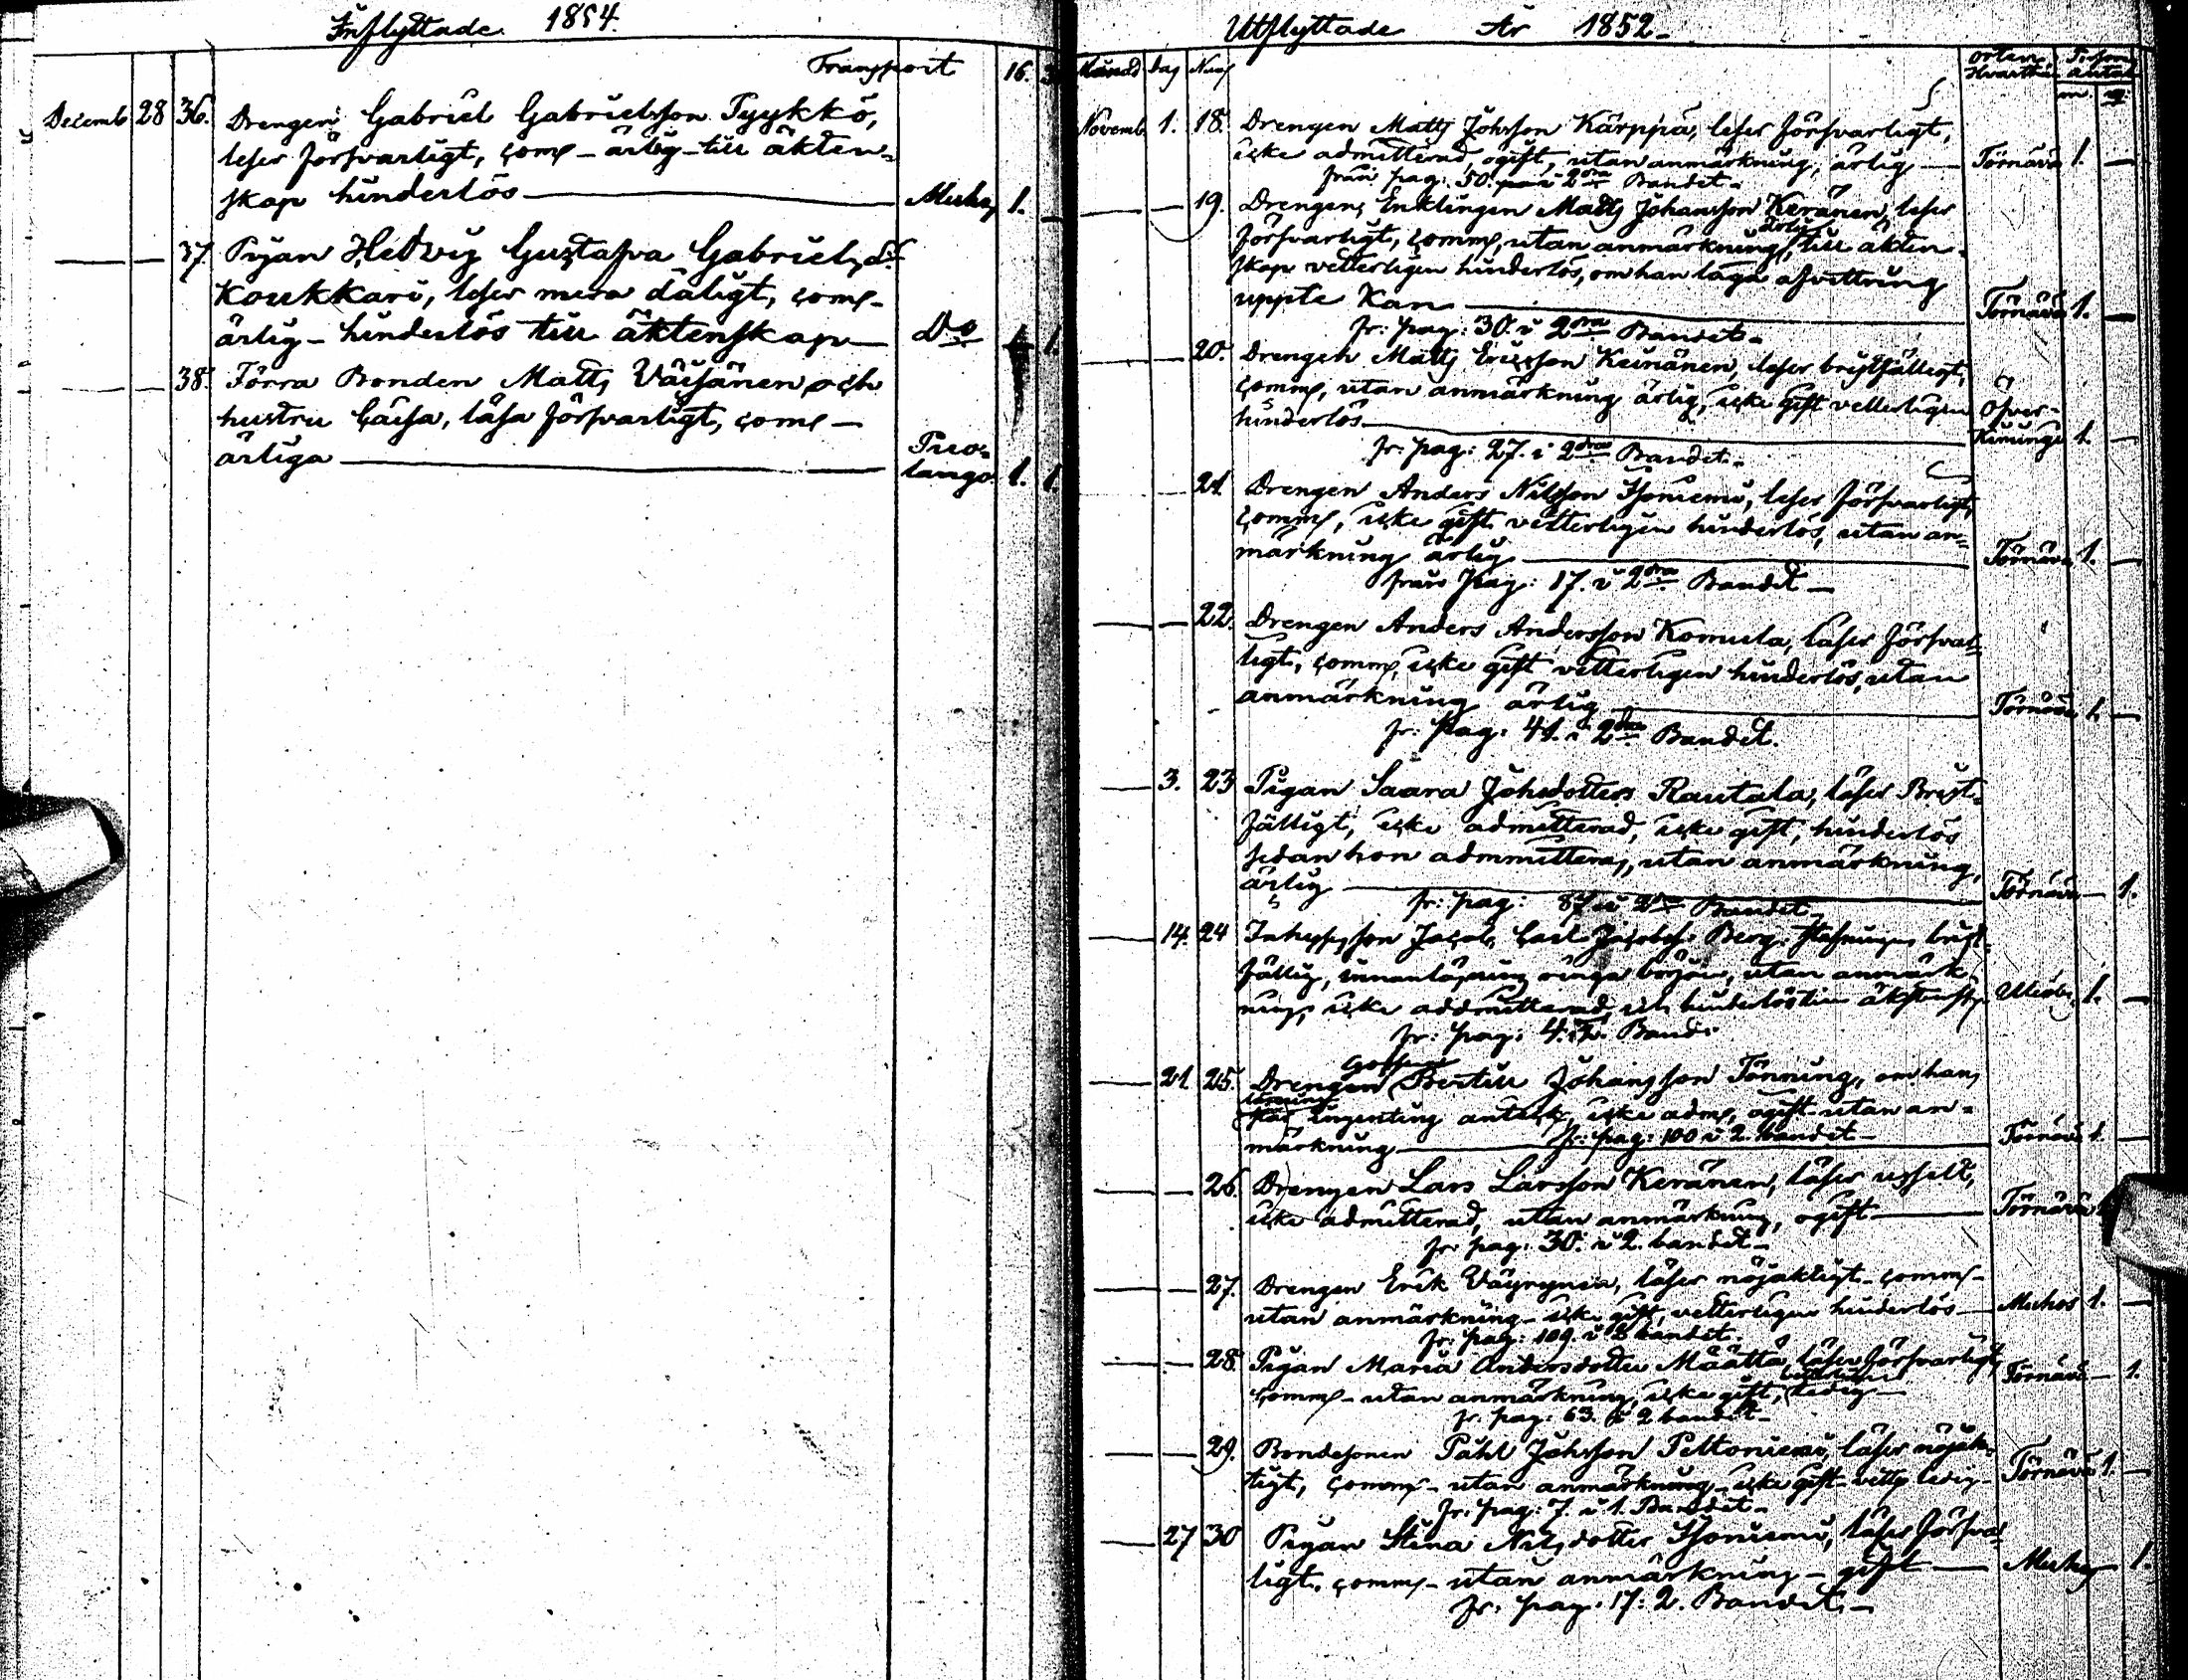 Inflyttade 1854.
Transport 16.
Decemb 28 36. Drengen Gabriel Gabrielsson Tyykkö,
leser försvarligt, comm - ärlig - till äkten=
skap hinderlös Muhos 1.
37 Pigan Hedvig Gustafva Gabrielsd:r
Koukkari, leser mera dåligt, comm -
ärlig - hinderlös till äktenskap Do 1.
38. Förra Bonden Matts Väisänen och
hustru Caisa, läsa försvarligt, comm -
ärliga Puo=
lango 1. 1.
Utflyttade År 1852
Månad Dag Num orten Hvarthän Person antal
m. q.
Novemb. 1. 18. Drengen Matts Johsson Kärppä, leser försvarligt,
icke admitterad, ogift, utan anmärkning, ärlig Törnävä 1.
från pag: 50. i 2dra Bandet
19. Drengen, Enklingen Matts Johansson Keränen, leser
försvarligt, comm, utan anmärkning, ärlig, till äkten=
skap vetterligen hinderlös, om han laga afvittring
uppte kan Törnävä 1.
fr: pag: 30. i 2dra Bandet
20. Drengen Matts Ericsson Keinänen, leser bristfälligt,
comm, utan anmärkning ärlig, icke gift vetterligen Öfver-
hinderlös Kiminge 1.
fr: pag: 27. i 2dra Bandet
21 Drengen Anders Nilsson Isoniemi, leser försvarligt,
comm, icke gift vetterligen hinderlös, utan an=
märkning ärlig Törnävä 1.
från pag: 17. i 2dra Bandet
22. Drengen Anders Andersson Komula, läser försvar=
ligt, comm, icke gift vetterligen hinderlös, utan
anmärkning ärlig Törnävä 1.
fr: pag: 41. i 2dra Bandet.
3. 23 Pigan Saara Johsdotter Rautala, läser Brist=
fälligt, icke admitterad, icke gift, hinderlös
sedan hon admmitteras, utan anmärkning,
ärlig Törnävä 1.
fr: pag: 87 i 2dra Bandet
14. 24 Jacob Carl Jacobss: Berg, stafningen brist=
fällig, innanläsning ringa början, utan anmärk=
ning, icke addmitterad, hinderlös till äktensk Uleåb. 1.
fr: pag: 4. Band.
21 25. Drengen Gossen Bertill Johansson Tönning, om hans
läsning ingenting anteck, icke adm, ogift utan an=
märkning fr: pag: 100 i 2. bandet Törnävä 1.
26. Drengen Lars Larsson Keränen, läser uselt,
icke admitterad, utan anmärkning, ogift Törnävä
fr: pag: 30. i 2. bandet
27. Drengen Erik Väyrynen, läser nöjaktigt - comm -
utan anmärkning - icke gift, vetterligen hinderlös Muhos 1.
fr: pag: 109. i 2 bandet.
28. Pigan Maria Andersdotter Määttä, läser försvarligt,
comm - utan anmärkning, icke gift, ledig Törnävä 1.
fr: pag: 63. i 2 bandet
29. Bondesonen Påhl Johsson Peltoniemi, läser nöjak=
tigt, comm - utan anmärkning - icke gift - vettr ledig Törnävä 1.
fr: pag: 7. i 1. Bandet
27 30 Pigan Stina Nilsdotter Isoniemi, läser försvar=
ligt, comm - utan anmärkning - gift Muhos 1.
fr: pag. 17: 2. Bandet.